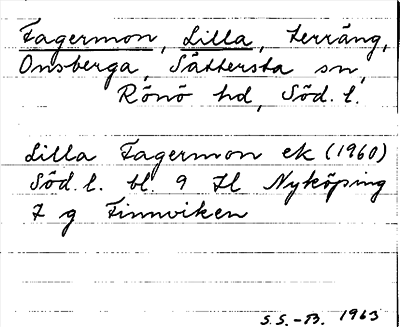 Fagermon, Lilla, terräng,
Onsberga, Sättersta sn,
Rönö hd, Söd. l.
Lilla Fagermon ek (1960)
Söd. l. bl. 9 H Nyköping
7 g Finnviken
S.S.-B. 1963